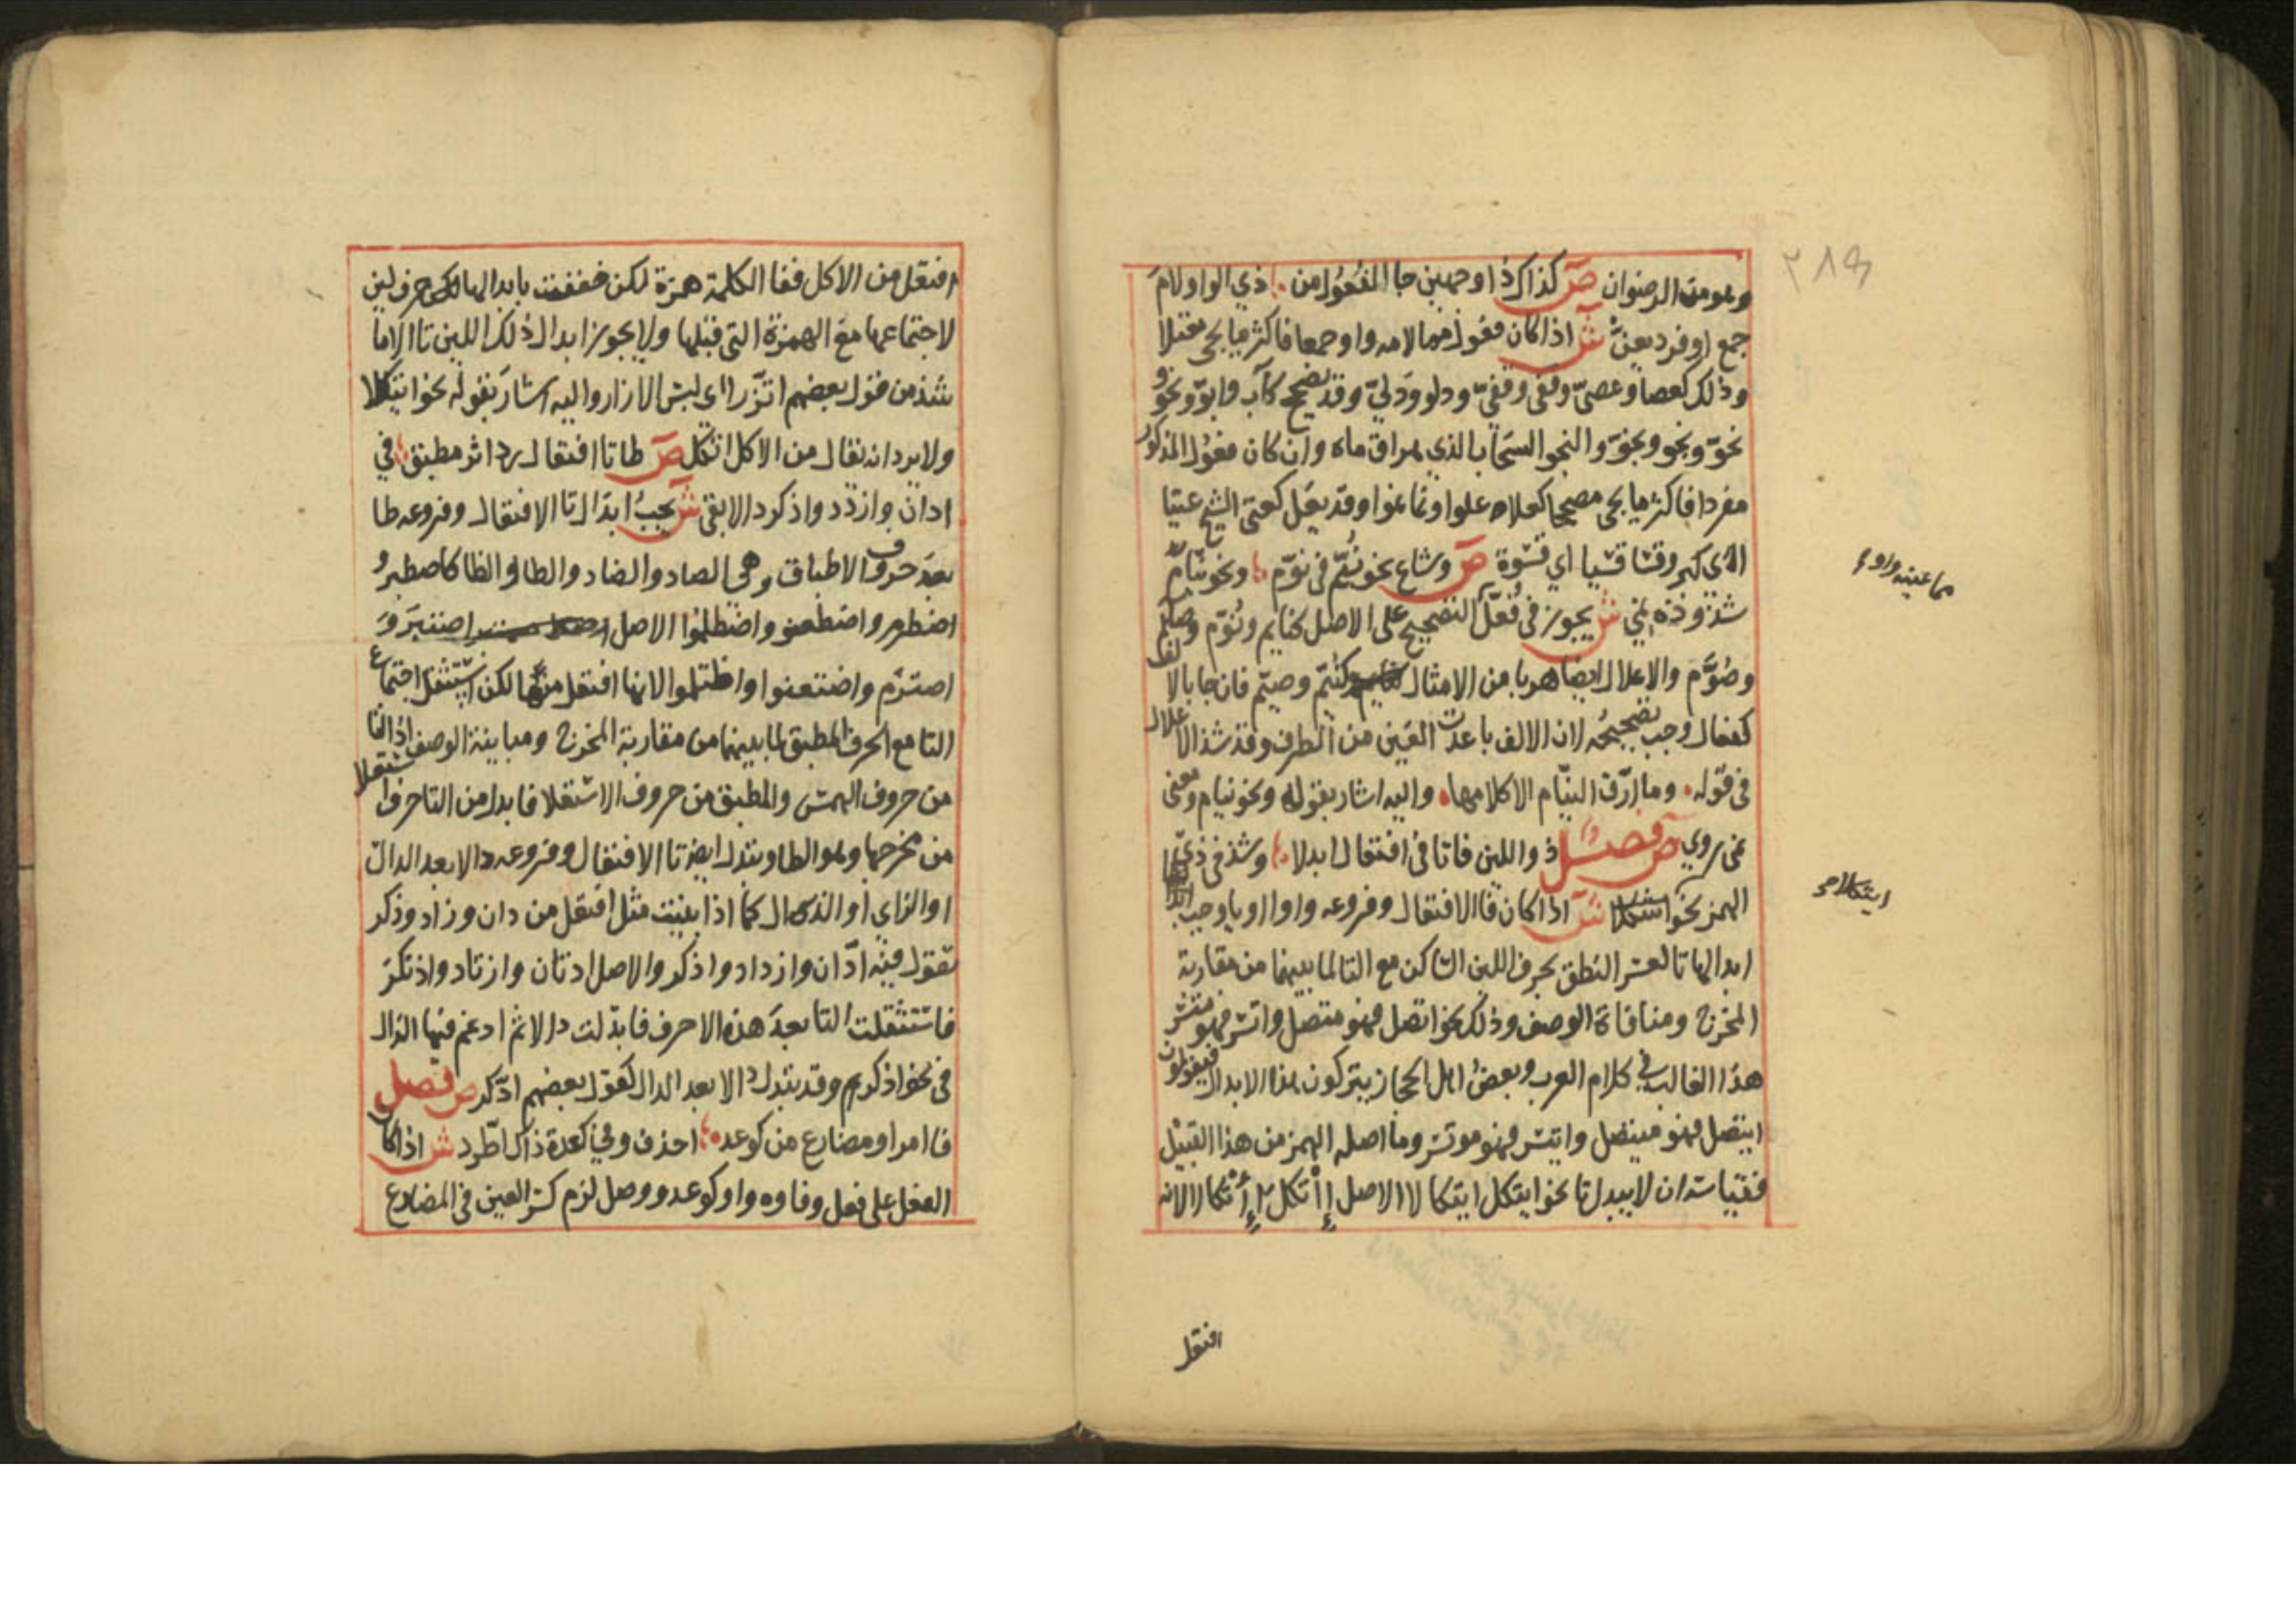 وهو من الرضوان ص كذاك ذا وجهين جا الفعول من ذي الواو لام
جمع او فرد يعن ش اذا كان فعول مما لامه واو جمعا فاكثر ما يجي معتلا
وذلك كعصا وعصي وقفي وقفي ودلو ودلي وقد يصحح كاب وابو ونحو
نحو ونجو ونجو والنجو السحاب الذي هراق ماه وان كان فعول المذكور
مفردا فاكثر ما يجي مصححا كعلاه علوا ونما نموا وقد يعل كعتى الشيخ عتيا
اي كبر وقسا قسيا اي قسوة ص وشاع نحو نيم في نوم ونحو نيام
شذوذه نمي ش يجوز في فعل التصحيح على الاصل كنايم ونوم وصايم
وصوم والاعلال ايضا هربا من الامثال كنيم وصيم فان جا بالالف
كفعال وجب تصحيحه لان الالف باعدت العين من الطرف وقد شذ الاعلال
في قوله وما ارق النيام الا كلامها واليه اشار بقوله ونحو نيام ومعنى
نمى روي ص فصل ذو اللين فاتا في افتعال ابدلا وشذ في ذي
الهمز نحو ش اذا كان فا الافتعال وفروعه واوا او يا وجب
ابدالها تا لعسر النطق بحرف اللين الساكن مع التا لما بينهما من مقاربة
المخرج ومنافاة الوصف وذلك نحو اتصل فهو متصل واتسر فهو متسر
هذا الغالب في كلام العرب وبعض اهل الحجاز يتركون هذا الابدال فيقولون
ايتصل فهو ميتصل وايتسر فهو موتسر وما اصله الهمز من هذا القبيل
فقياسه ان لا يبدل تا نحو ايتكل ايتكالا الاصل إأتكل إأتكالا لانه
مما عينه واو
ايتكلا ص
افتعل
افتعل من الاكل ففا الكلمة همزة لكن خففت بابدالها حرف لين
لاجتماعها مع الهمزة التي قبلها ولا يجوز ابدال ذلك اللين تا الا ما
شذ من قول بعضهم اتزر اي لبس الازار واليه اشار بقوله نحو ايتكلا
ولا يرد انه يقال من الاكل اتكل ص طا تا افتعال رد اثر مطبق في
ادان وازدد وادكر دالا بقي ش يجب ابدال تا الافتعال وفروعه طا
بعد حروف الاطباق وهي الصاد والضاد والطا والظا كاصطبر و
اضطرم واضطعنوا واضطلموا الاصل اصتبر و
اضترم واضتعنوا واظتلموا لانها افتعل منها لكن استثقل اجتماع
التا مع الحرف المطبق لما بينهما من مقاربة المخرج ومباينة الوصف اذ التا
من حروف الهمس والمطبق من حروف الاستعلا فابدل من التا حرف استعلا
من مخرجها وهو الطا وتبدل ايضا تا الافتعال وفروعه دالا بعد الدال
او الزاي او الذال كما اذا بنيت مثل افتعل من دان وزاد وذكر
تقول فيه ادان وازداد واذكر والاصل ادتان وازتاد واذتكر
فاستثقلت التا بعد هذه الاحرف فابدلت دالا ثم ادغم فيها الذال
في نحو اذكر وقد تبدل دالا بعد الذال كقول بعضهم اذدكر ص فصل
فا امر او مضارع من كوعد احذف وفي كعدة ذاك اطرد ش اذا كان
الفعل على فعل وفاوه واو كوعد ووصل لزم كسر العين في المضارع